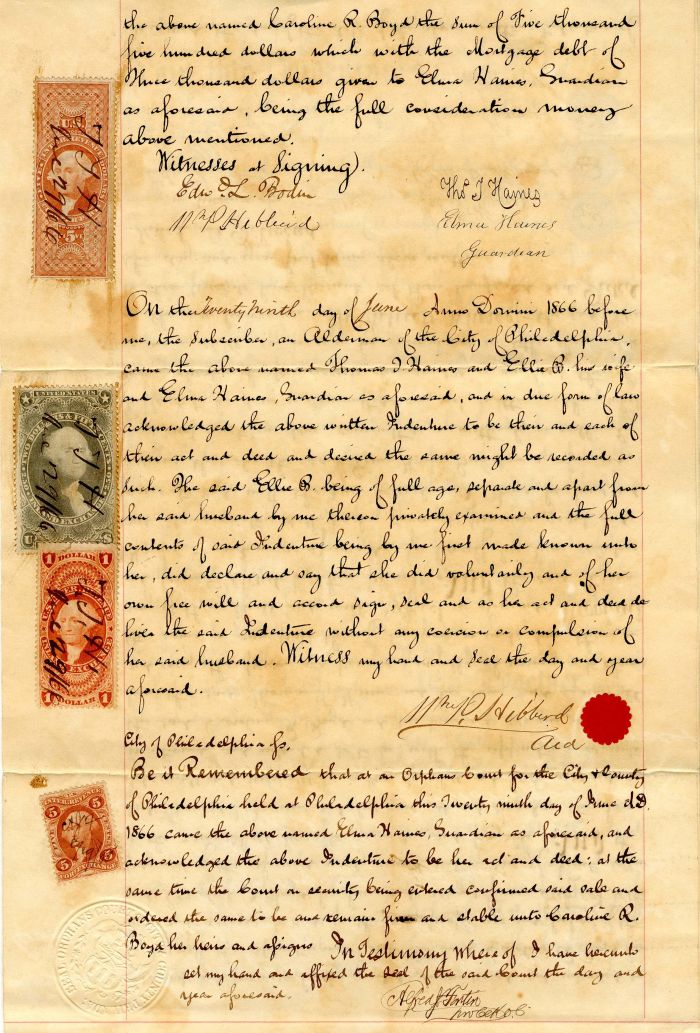 the above named Caroline R. Boyd the sum of Five thousand
five hundred dollars which with the Mortgage debt of
Three thousand dollars given to Elma Haines, Guardian
as aforesaid, being the full consideration money
above mentioned.
Witnesses at Signing
Thos J Haines
Wm P. Hibberd
Elma Haines
Guardian
On the Twenty Ninth day of June Anno Domini 1866 before
me, the subscriber, an Alderman of the City of Philadelphia,
came the above named Thomas J Haines and Ellie B. his wife
and Elma Haines, Guardian as aforesaid, and in due form of law
acknowledged the above written Indenture to be their and each of
their act and deed and desired the same might be recorded as
such. The said Ellie B. being of full age, separate and apart from
her said husband by me thereon privately examined and the full
contents of said Indenture being by me first made known unto
her, did declare and say that she did voluntarily and of her
own free will and accord sign, seal and as her act and deed de
liver the said Indenture without any coercion or compulsion of
her said husband. Witness my hand and seal the day and year
aforesaid.
Wm P. Hibberd
Ald
City of Philadelphia Ss.
Be it Remembered that at an Orphans Court for the City & County
of Philadelphia held at Philadelphia this Twenty ninth day of June A.D.
1866 came the above named Elma Haines, Guardian as aforesaid, and
acknowledged the above Indenture to be her act and deed; at the
same time the Court on security being entered confirmed said sale and
ordered the same to be and remain firm and stable unto Caroline R.
Boyd her heirs and assigns In Testimony Where of I have hereunto
set my hand and affixed the seal of the said Court the day and
year aforesaid.
U.S.
5
UNITED STATES
1 DOLLAR 1
1 DOLLAR 1
5 5
5 5